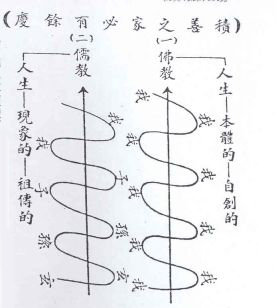 (積善之家必有餘慶)
(一)
佛教
人生—本體的—自創的
我
我
我
我
我
我
我
我
我
(二)
儒教
人生—現象的—祖傳的
我
我
子
子
孫
孫
玄
玄